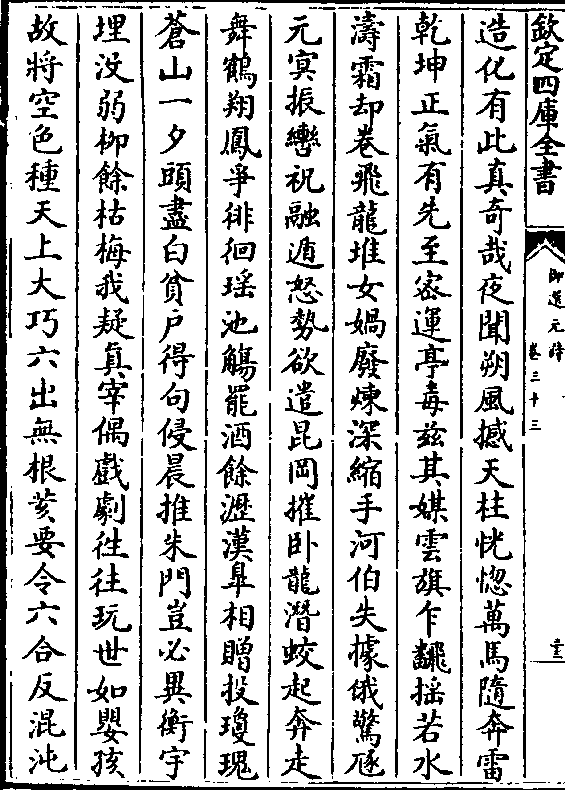 欽定四庫全書
御選元詩
卷三十三
造化有此真奇哉夜聞朔風撼天柱恍惚萬馬隨奔雷
乾坤正氣有先至密運亭毒兹其媒雲旗乍飜揺若水
濤霜却卷飛龍堆女媧廢煉深縮手河伯失據俄驚豗
元冥振轡祝融遁怒勢欲遣昆岡摧卧龍潛蛟起奔走
舞鶴翔鳳爭徘徊瑶池觴罷酒餘瀝漢臯相贈投瓊瑰
蒼山一夕頭盡白貧户得句侵晨推朱門豈必異衡宇
埋没弱栁餘枯梅我疑真宰偶戲劇往往玩世如嬰孩
故將空色種天上大巧六出無根荄要令六合反混沌